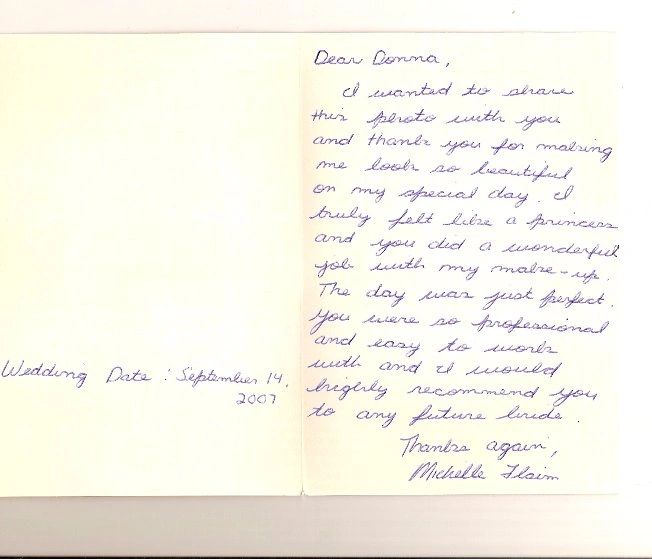 Wedding Date : September 14,
2007
Dear Donna,
I wanted to share
this photo with you
and thank you for making
me look so beautiful
on my special day. I
truly felt like a princess
and you did a wonderful
job with my make-up.
The day was just perfect.
You were so professional
and easy to work
with and I would
highly recommend you
to any future bride.
Thanks again,
Michelle Flaim